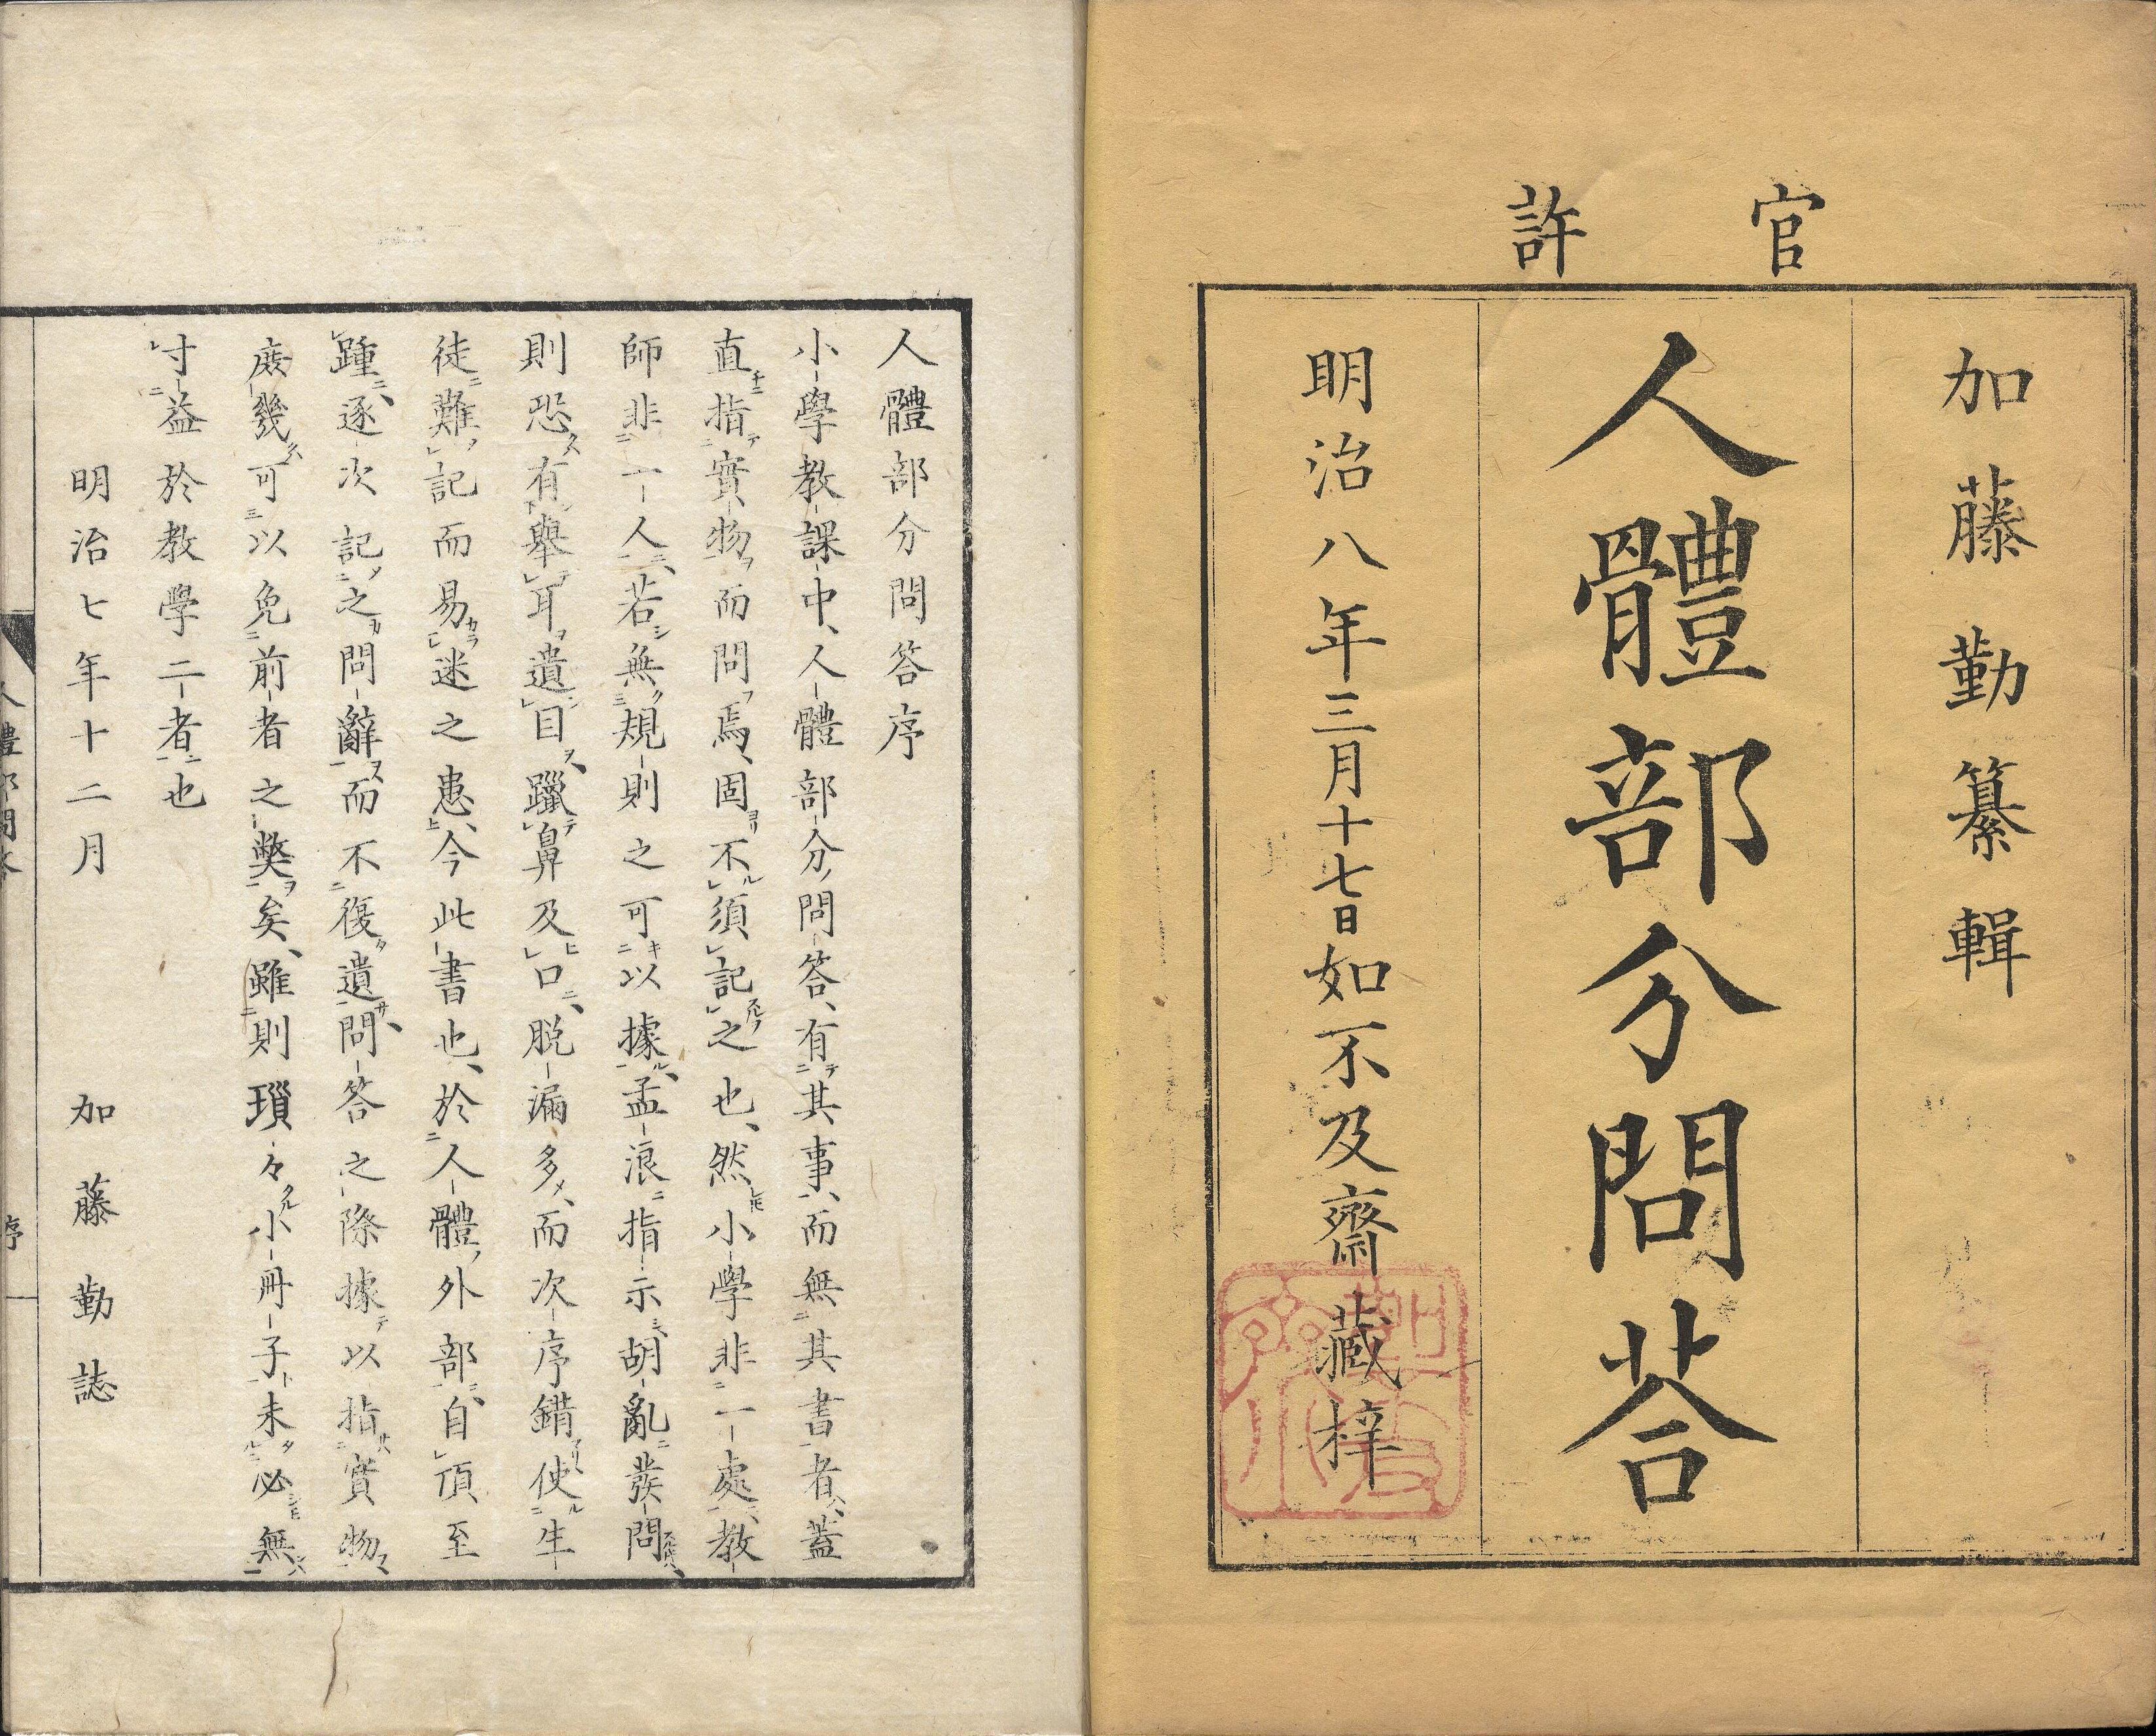 官許
加藤勤纂輯
人體部分問荅
明治八年三月十七日如不及齋藏梓
人體部分問答序
小學教課中、人體部分問答、有其事、而無其書者、蓋
直指實物而問焉、固不須記之也、然小學非一處、教
師非一人、若無規則之可以據、孟浪指示、胡亂發問、
則恐有舉耳遺目、躐鼻及口、脱漏多、而次序錯、使生
徒難記而易迷之患、今此書也、於人體外部、自頂至
踵、逐次記之問辭、而不復遺、問答之際據以指實物、
庶幾可以免前者之弊矣、雖則瑣々小冊子、未必無
寸益於教學二者也
明治七年十二月 加藤勤誌
序